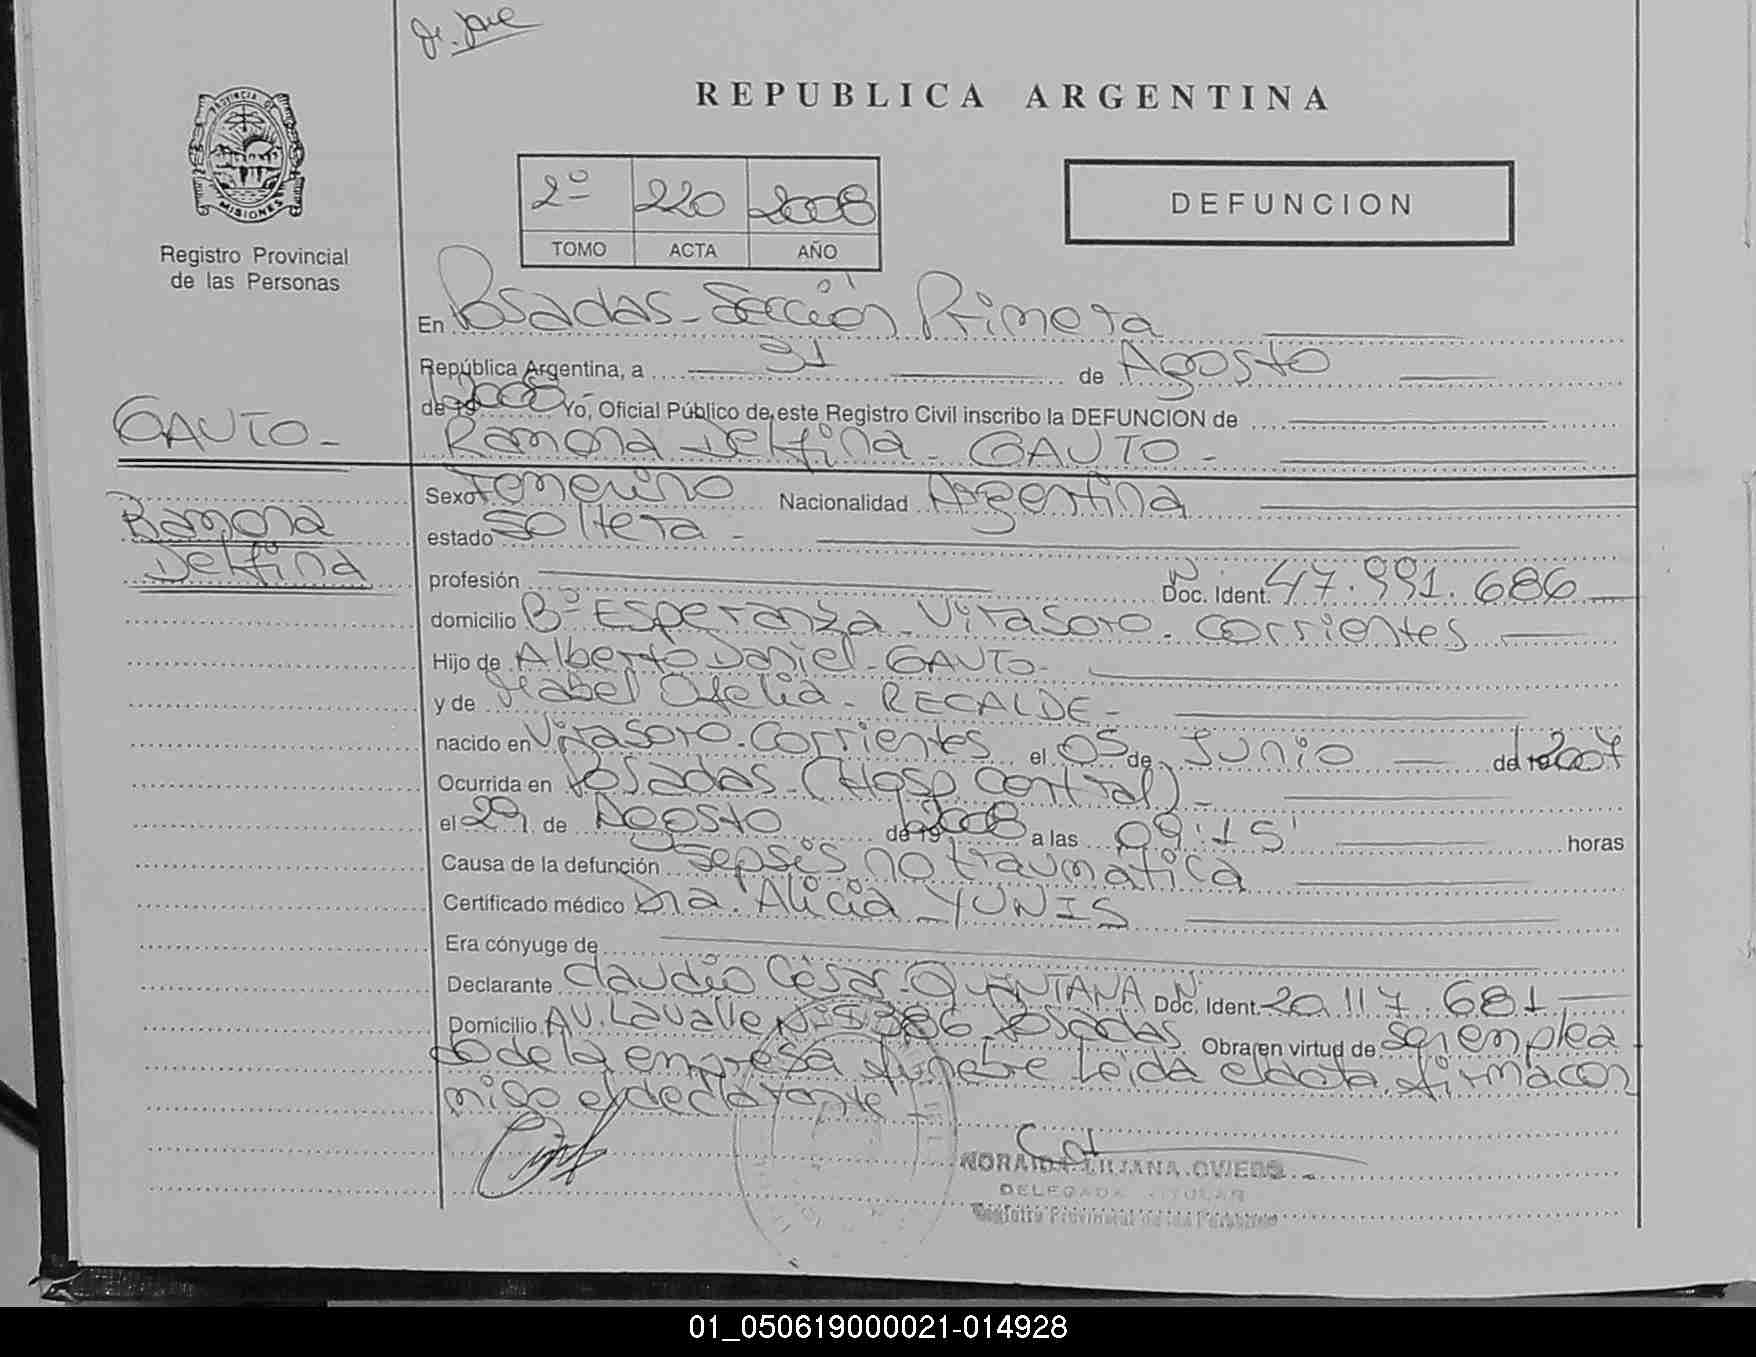 REPUBLICA ARGENTINA
PROVINCIA DE
MISIONES
2º 220 2008
TOMO ACTA AÑO
DEFUNCION
Registro Provincial
de las Personas
En Posadas - Sección Primera
República Argentina, a 31 de Agosto
de 19 2008 Yo, Oficial Público de este Registro Civil inscribo la DEFUNCION de
GAUTO -
Ramona Delfina - GAUTO -
Ramona
Delfina
Sexo Femenino Nacionalidad Argentina
estado Soltera -
profesión Doc. Ident. 47.991.686
domicilio Bº Esperanza - Virasoro - Corrientes
Hijo de Alberto Daniel - GAUTO -
y de Isabel Ofelia - RECALDE -
nacido en Virasoro - Corrientes el 05 de Junio de 19 2007
Ocurrida en Posadas - (Hosp Central) -
el 29 de Agosto de 19 2008 a las 09:15' horas
Causa de la defunción Sepsis no traumatica
Certificado médico Dra. Alicia YUNIS
Era cónyuge de
Declarante Claudio César - QUINTANA Doc. Ident. 20.117.681
Domicilio Av. Lavalle Nº 5386 Posadas Obra en virtud de ser emplea
do de la empresa funebre Leida el acta firma con
migo el declarante -
NORAIDA LILIANA OVIEDO
DELEGADA TITULAR
Registro Provincial de las Personas
01_050619000021-014928